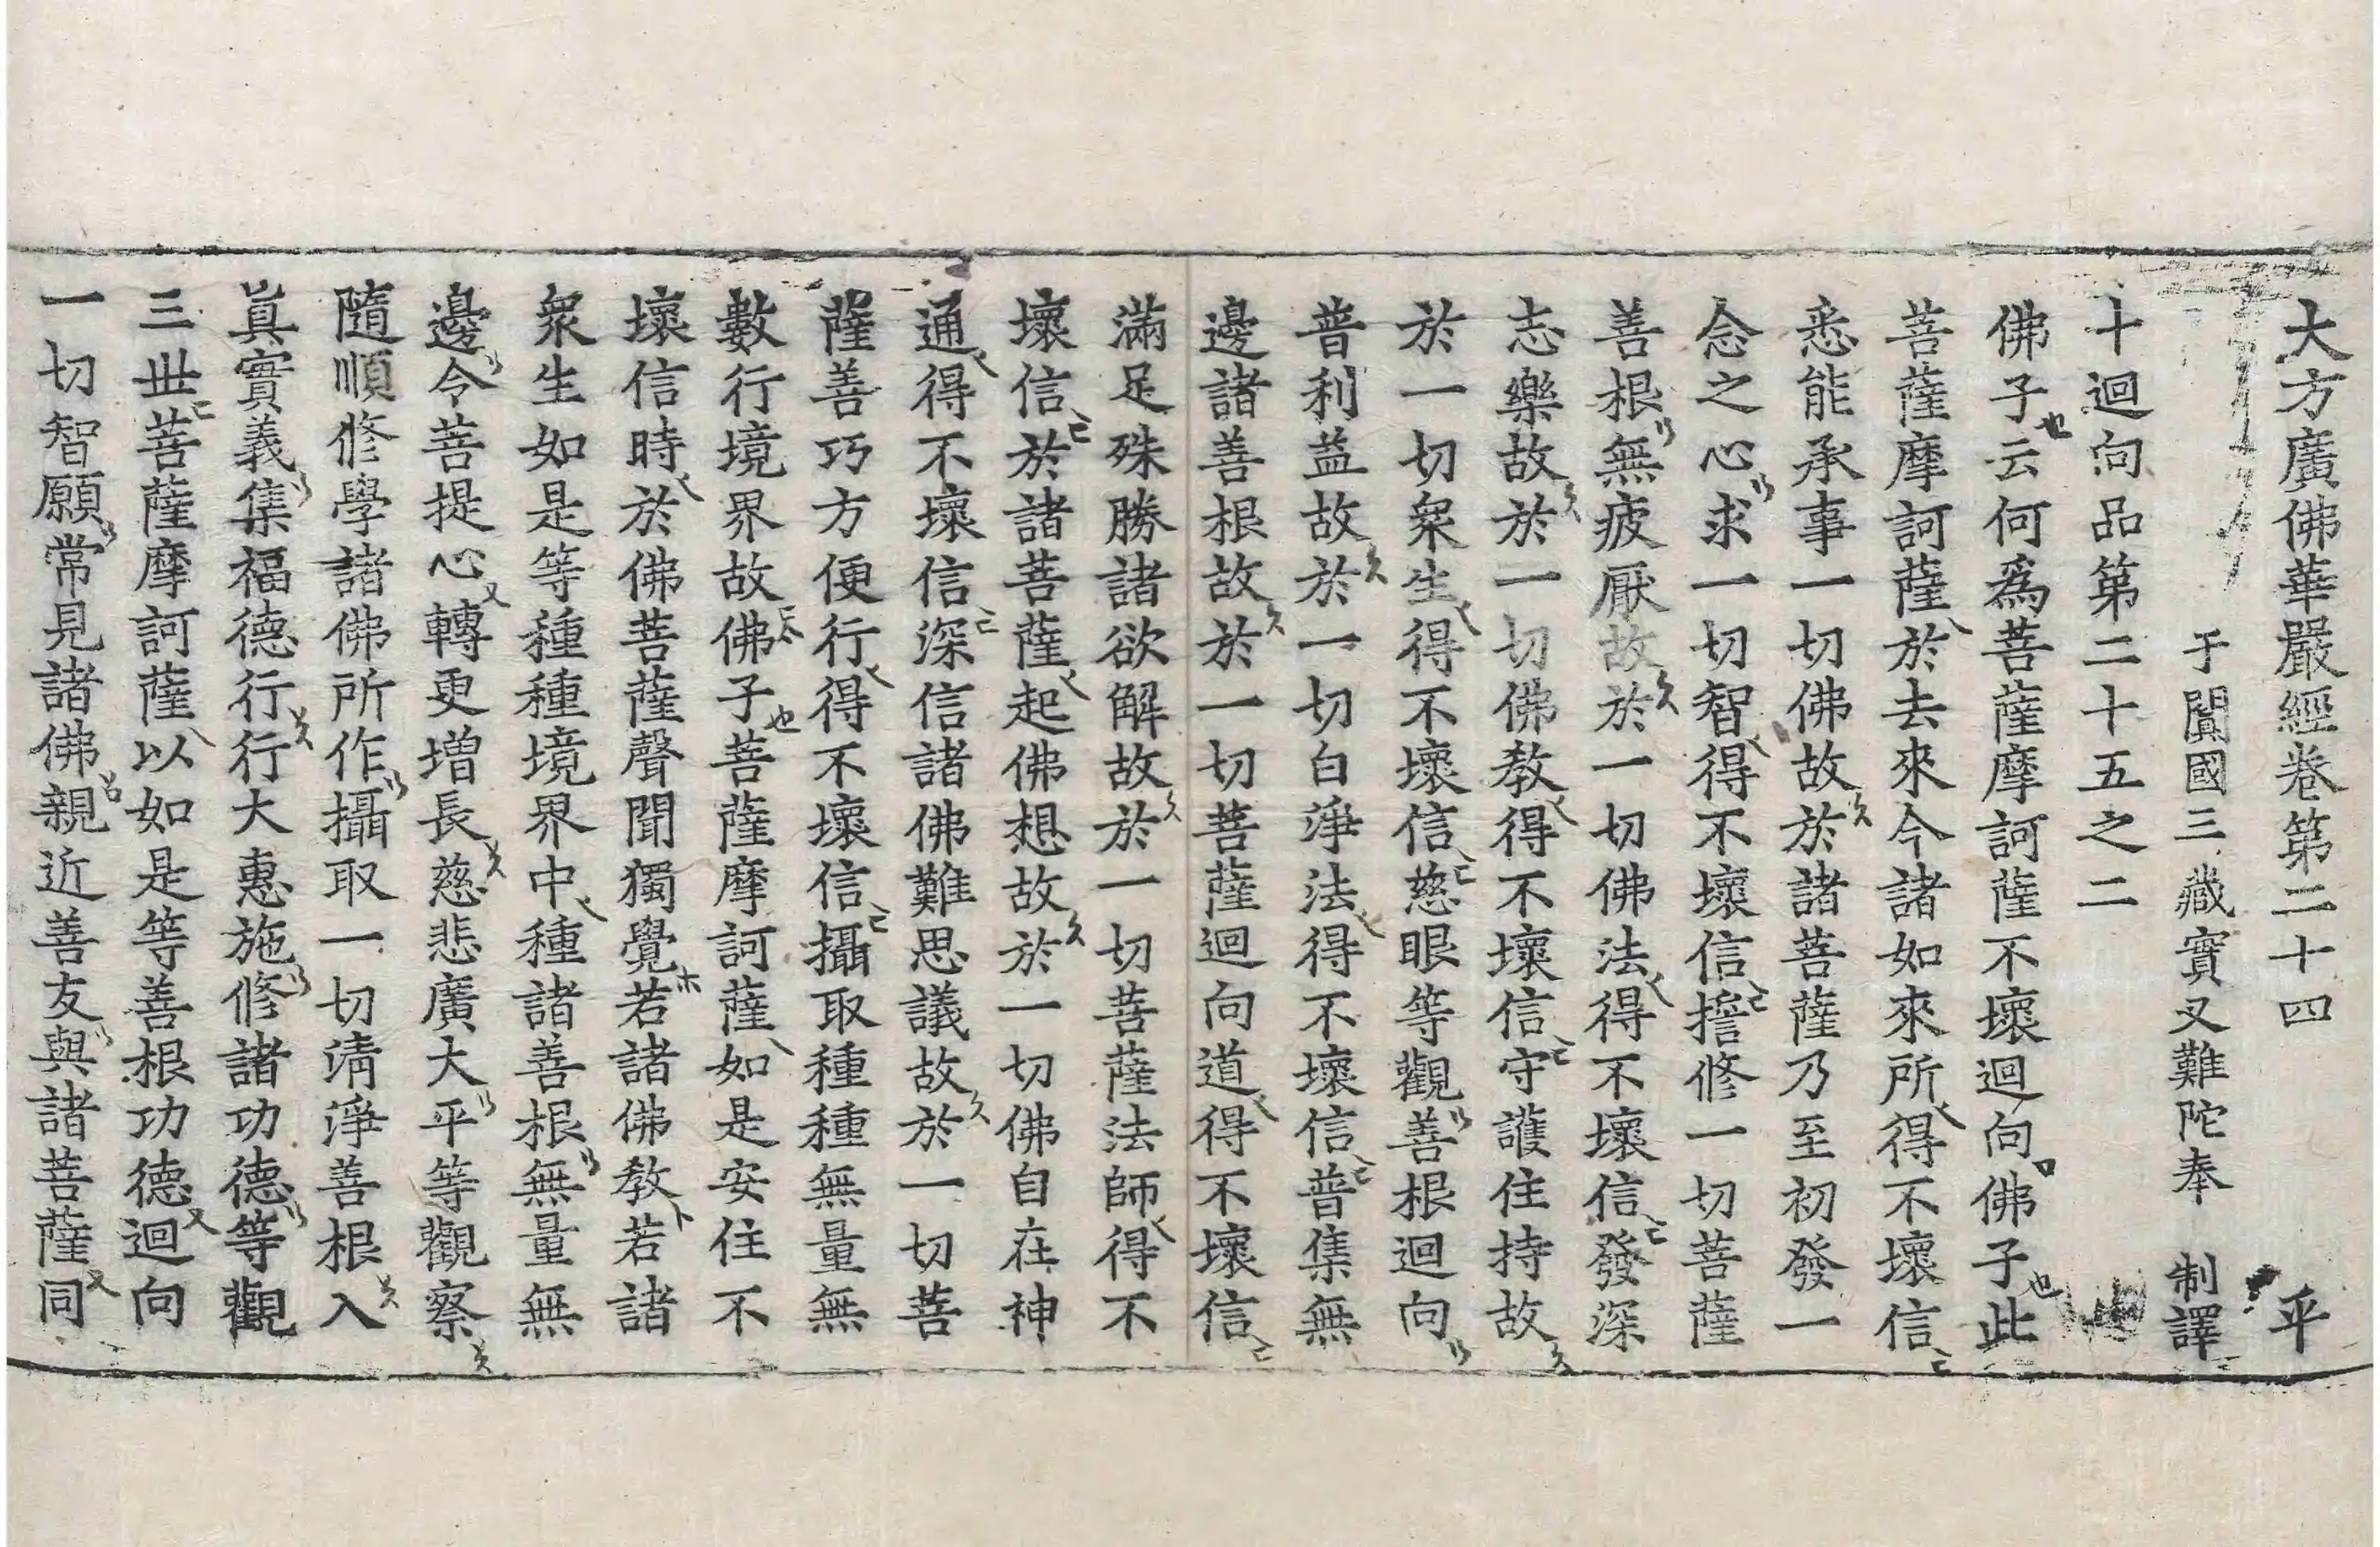 大方廣佛華嚴經卷第二十四 平
于闐國三藏實叉難陀奉 制譯
十迴向品第二十五之二
佛子云何爲菩薩摩訶薩不壞迴向佛子此
菩薩摩訶薩於去來今諸如來所得不壞信
悉能承事一切佛故於諸菩薩乃至初發一
念之心求一切智得不壞信擔修一切菩薩
善根無疲厭故於一切佛法得不壞信發深
志樂故於一切佛教得不壞信守護住持故
於一切衆生得不壞信慈眼等觀善根迴向
普利益故於一切白淨法得不壞信普集無
邊諸善根故於一切菩薩迴向道得不壞信
滿足殊勝諸欲解故於一切菩薩法師得不
壞信於諸菩薩起佛想故於一切佛自在神
通得不壞信深信諸佛難思議故於一切菩
薩善巧方便行得不壞信攝取種種無量無
數行境界故佛子菩薩摩訶薩如是安住不
壞信時於佛菩薩聲聞獨覺若諸佛教若諸
衆生如是等種種境界中種諸善根無量無
邊令菩提心轉更增長慈悲廣大平等觀察
隨順修學諸佛所作攝取一切清淨善根入
眞實義集福德行行大惠施修諸功德等觀
三世菩薩摩訶薩以如是等善根功德迴向
一切智願常見諸佛親近善友與諸菩薩同